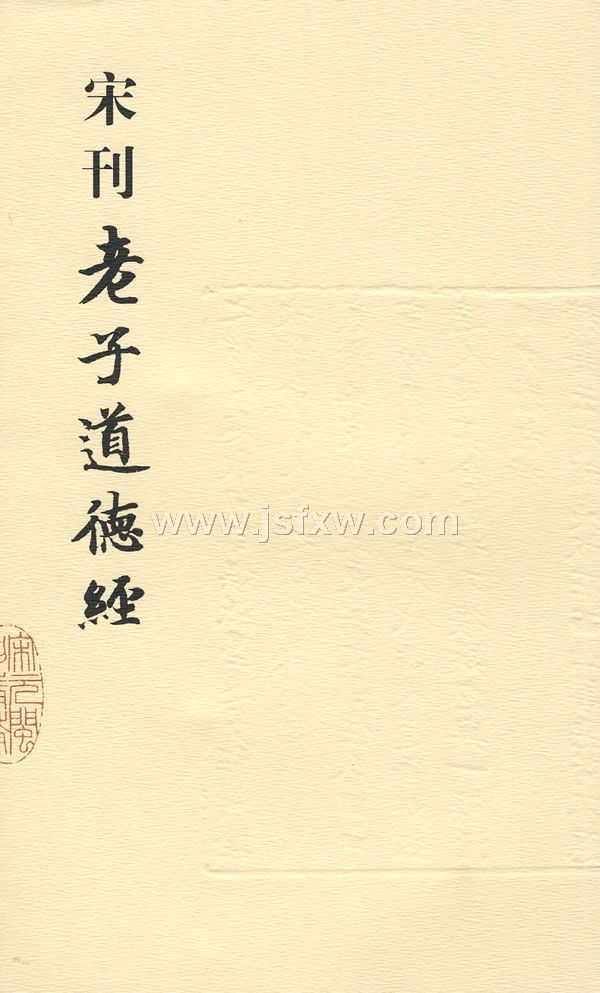 宋刊老子道德經
www.jsfxw.com
宋元閩